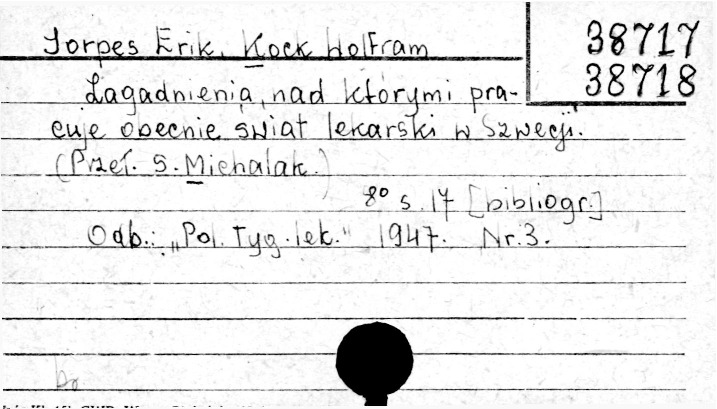 Jorpes Erik, Kock Wolfram
38717
38718
Zagadnienia, nad którymi pra-
cuje obecnie świat lekarski w Szwecji.
(Przeł. S. Michalak.)
8° s. 17 [bibliogr.]
Odb.: „Pol. Tyg. lek." 1947. Nr. 3.